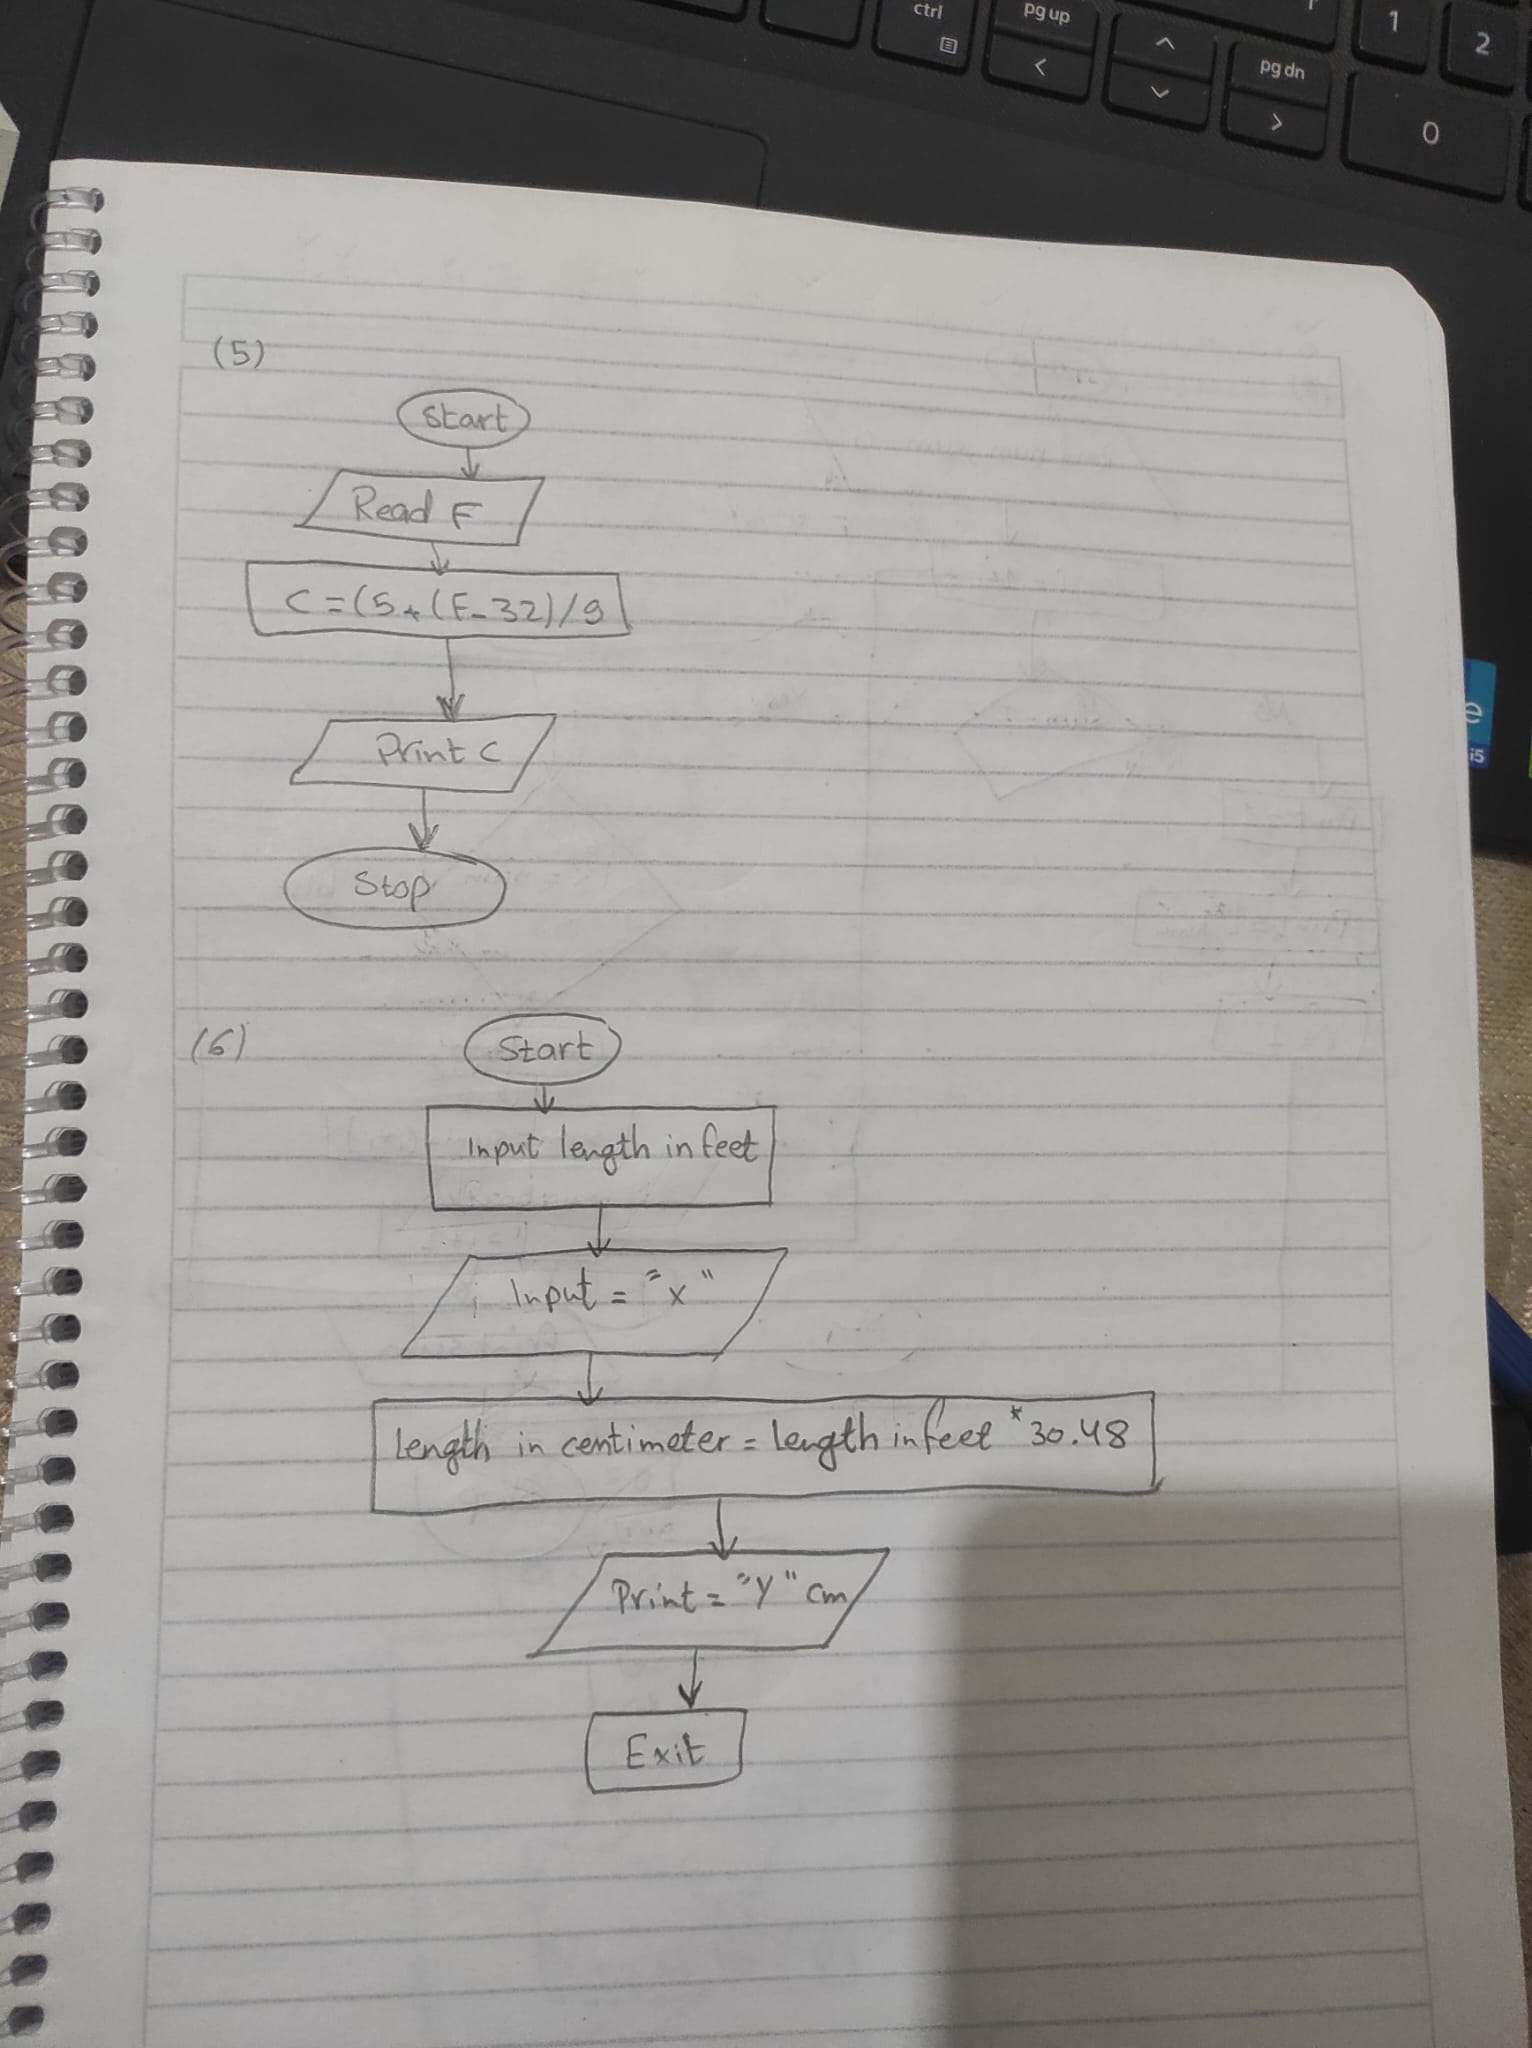 ctrl
pg up
1
2
pg dn
0
(5)
Start
Read F
C=(5*(F-32)/9
Print C
Stop
e
i5
(6)
Start
Input length in feet
Input = "x"
Length in centimeter = length in feet * 30.48
Print = "Y" cm
Exit